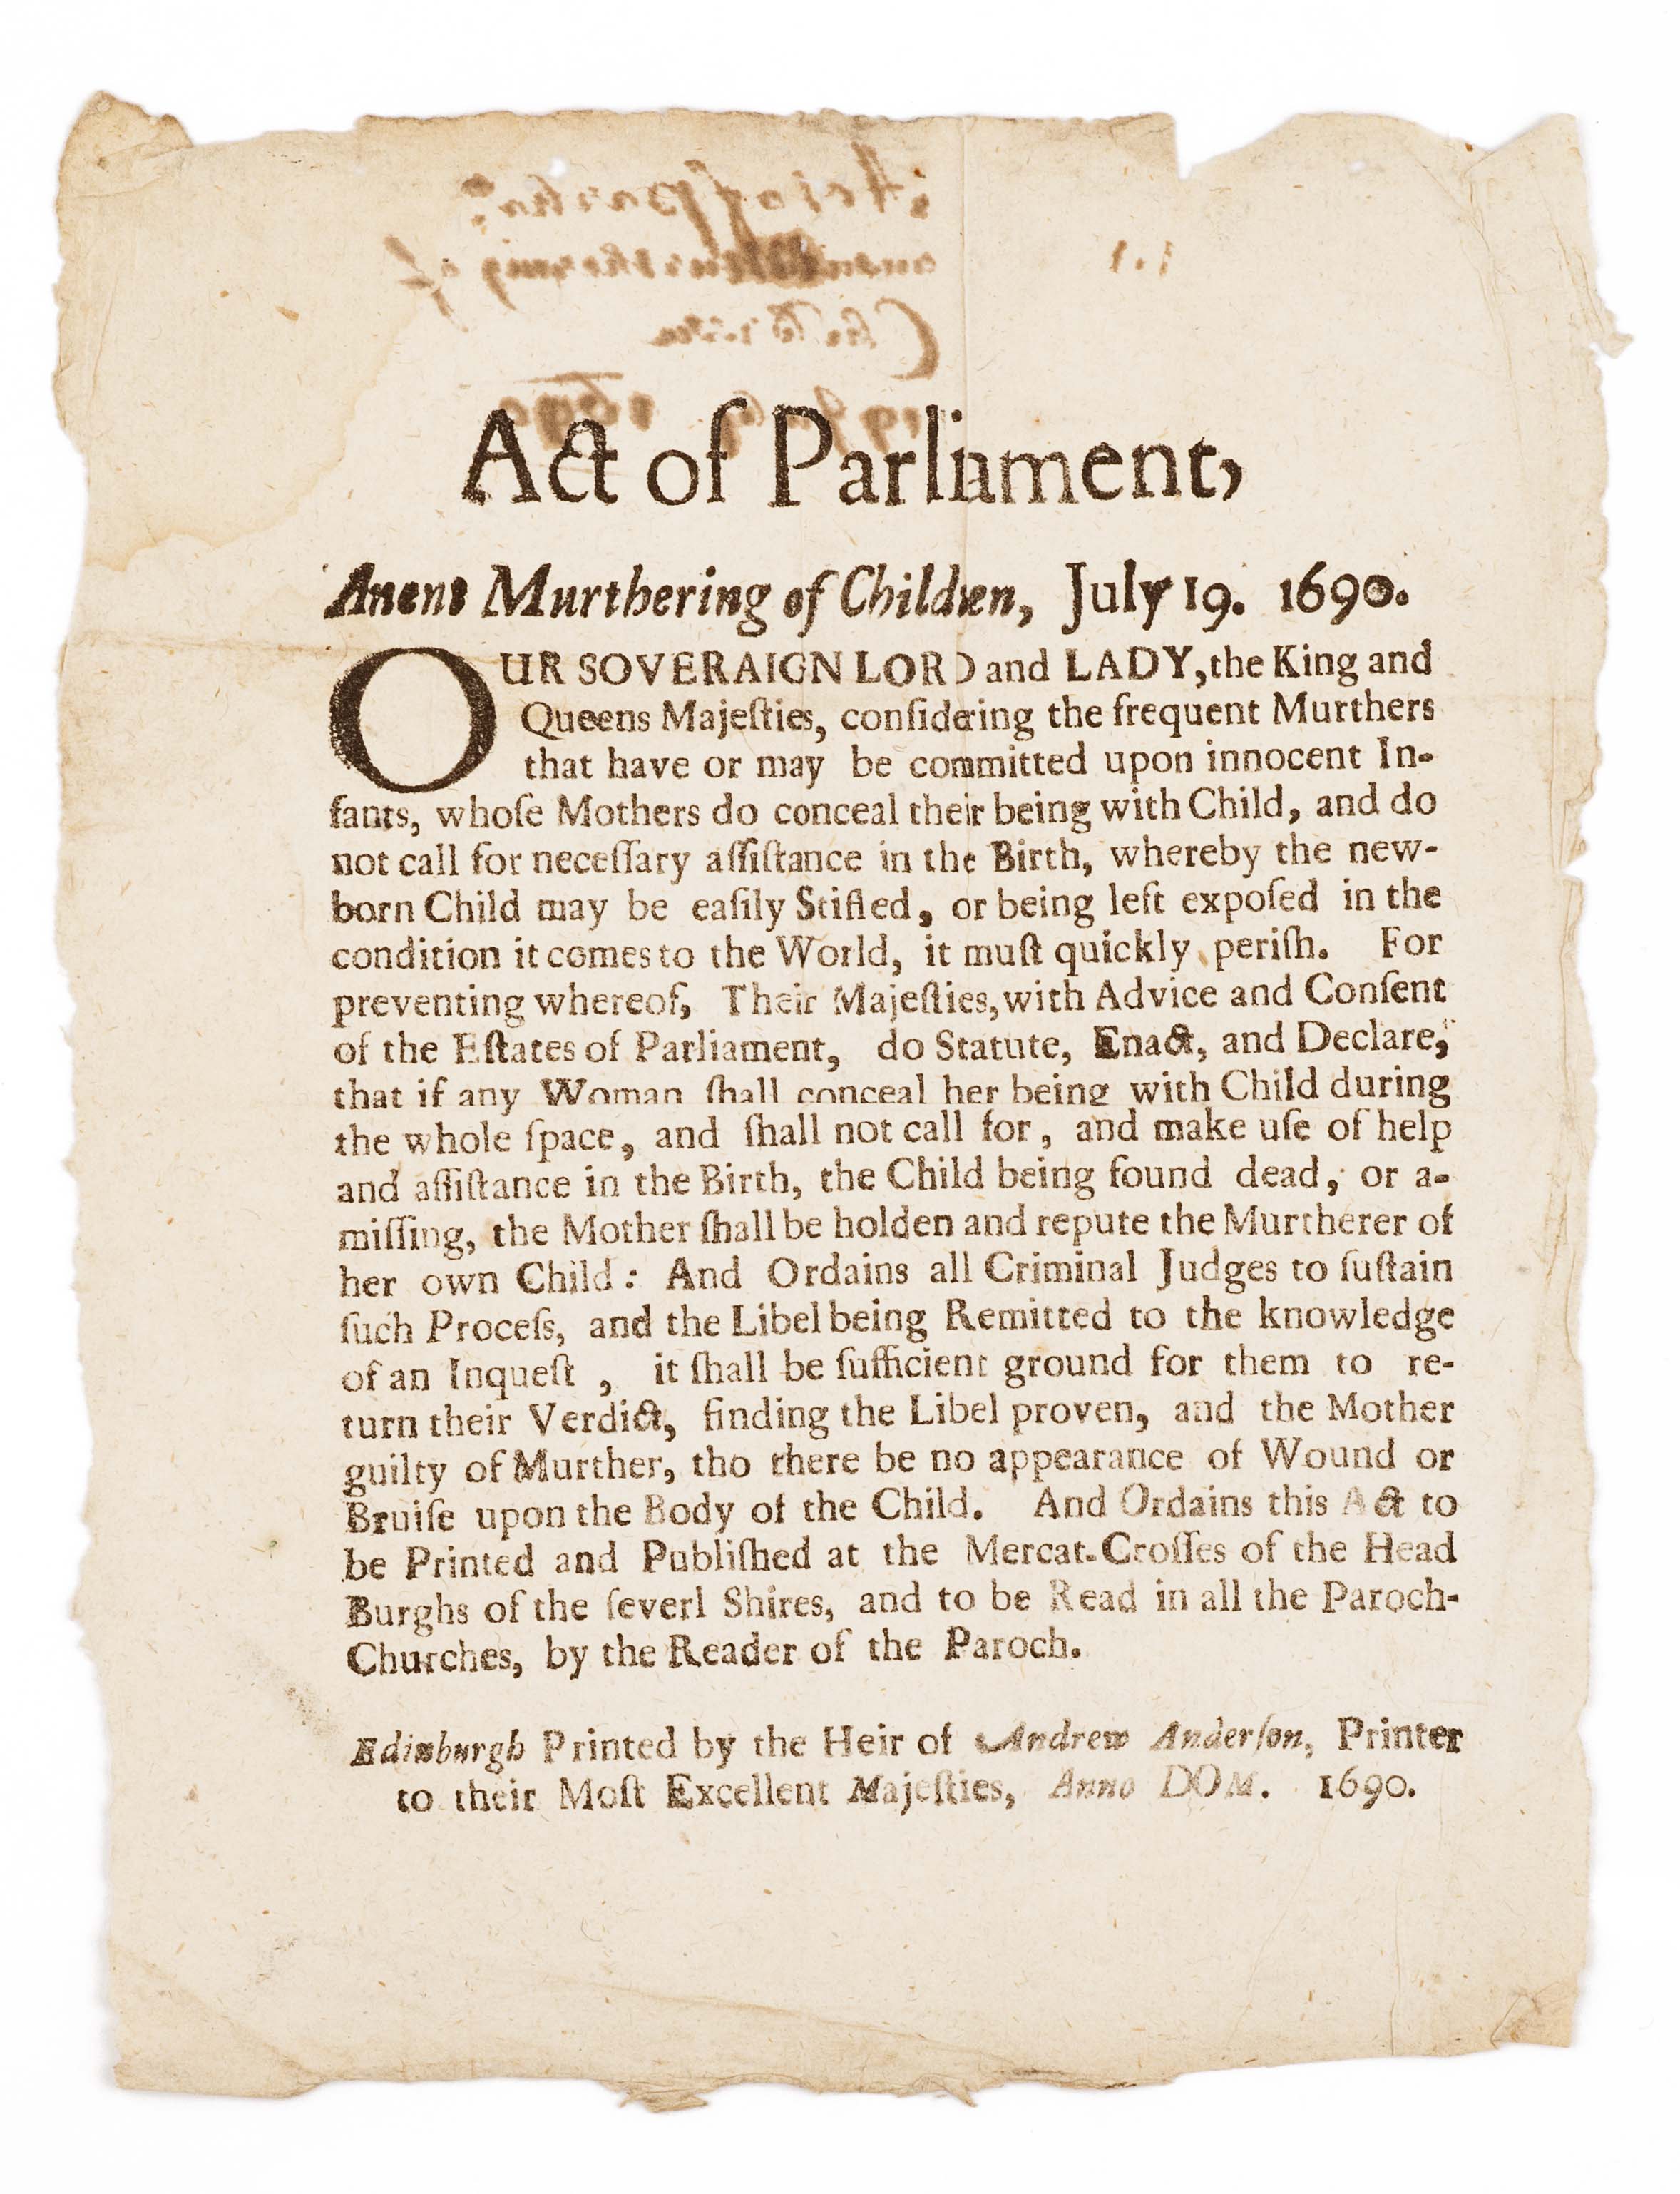 Act of Parliament,
Anent Murthering of Children, July 19. 1690.
OUR SOVERAIGN LORD and LADY, the King and
Queens Majeſties, conſidering the frequent Murthers
that have or may be committed upon innocent In-
fants, whoſe Mothers do conceal their being with Child, and do
not call for neceſſary aſſiſtance in the Birth, whereby the new-
born Child may be eaſily Stifled, or being left expoſed in the
condition it comes to the World, it muſt quickly periſh. For
preventing whereof, Their Majeſties, with Advice and Conſent
of the Eſtates of Parliament, do Statute, Enact, and Declare,
that if any Woman ſhall conceal her being with Child during
the whole ſpace, and ſhall not call for, and make uſe of help
and aſſiſtance in the Birth, the Child being found dead, or a-
miſſing, the Mother ſhall be holden and repute the Murtherer of
her own Child: And Ordains all Criminal Judges to ſuſtain
ſuch Proceſs, and the Libel being Remitted to the knowledge
of an Inqueſt, it ſhall be ſufficient ground for them to re-
turn their Verdict, finding the Libel proven, and the Mother
guilty of Murther, tho there be no appearance of Wound or
Bruiſe upon the Body of the Child. And Ordains this Act to
be Printed and Publiſhed at the Mercat-Croſſes of the Head
Burghs of the ſeverl Shires, and to be Read in all the Paroch-
Churches, by the Reader of the Paroch.
Edinburgh Printed by the Heir of Andrew Anderſon, Printer
to their Moſt Excellent Majeſties, Anno DOM. 1690.